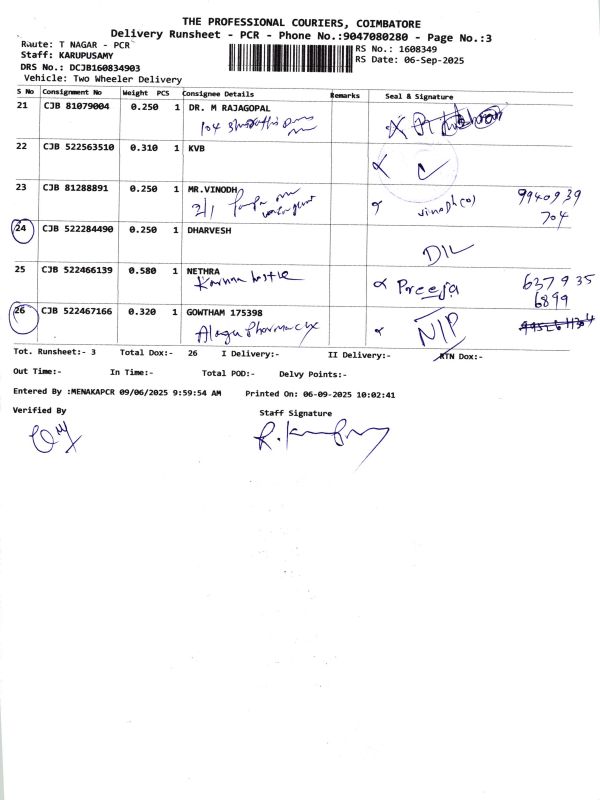 THE PROFESSIONAL COURIERS, COIMBATORE
Delivery Runsheet - PCR - Phone No.:9047080280 - Page No.:3
Route: T NAGAR - PCR
RS No.: 1608349
Staff: KARUPUSAMY
RS Date: 06-Sep-2025
DRS No.: DCJB160834903
Vehicle: Two Wheeler Delivery
S No Consignment No Weight PCS Consignee Details Remarks Seal & Signature
21 CJB 81079004 0.250 1 DR. M RAJAGOPAL
104
22 CJB 522563510 0.310 1 KVB
23 CJB 81288891 0.250 1 MR.VINODH
2/1
vinoph(o) 9940939
704
24 CJB 522284490 0.250 1 DHARVESH
D/L
25 CJB 522466139 0.580 1 NETHRA
Karuna hostle
Preeja 637935
6899
26 CJB 522467166 0.320 1 GOWTHAM 175398
Alagu Pharmacy
N/P
Tot. Runsheet:- 3 Total Dox:- 26 I Delivery:- II Delivery:- RTN Dox:-
Out Time:- In Time:- Total POD:- Delvy Points:-
Entered By :MENAKAPCR 09/06/2025 9:59:54 AM Printed On: 06-09-2025 10:02:41
Verified By Staff Signature